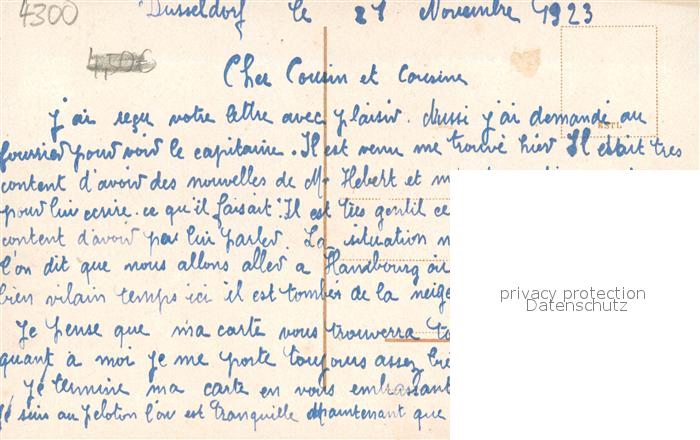 4300
Dusseldorf le 21 Novembre 1923
Cher Cousin et Cousine
j'ai reçu votre lettre avec plaisir. Aussi j'ai demandé au
fourrier pour voir le capitaine. Il est venu me trouvé hier Il était tres
content d'avoir des nouvelles de Mr Hebert et m
pour lui ecrire. ce qu'il faisait. Il est tres gentil ce
content d'avoir pu lui parler. La situation n
l'on dit que nous allons aller a Handbourg ou
bien vilain temps ici il est tombér de la neige
Je pense que ma carte vous trouverra to
quant à moi je me porte toujours assez bie
Je termine ma carte en vous embrassant
Je suis au peloton l'on est tranquille maintenant que
privacy protection
Datenschutz